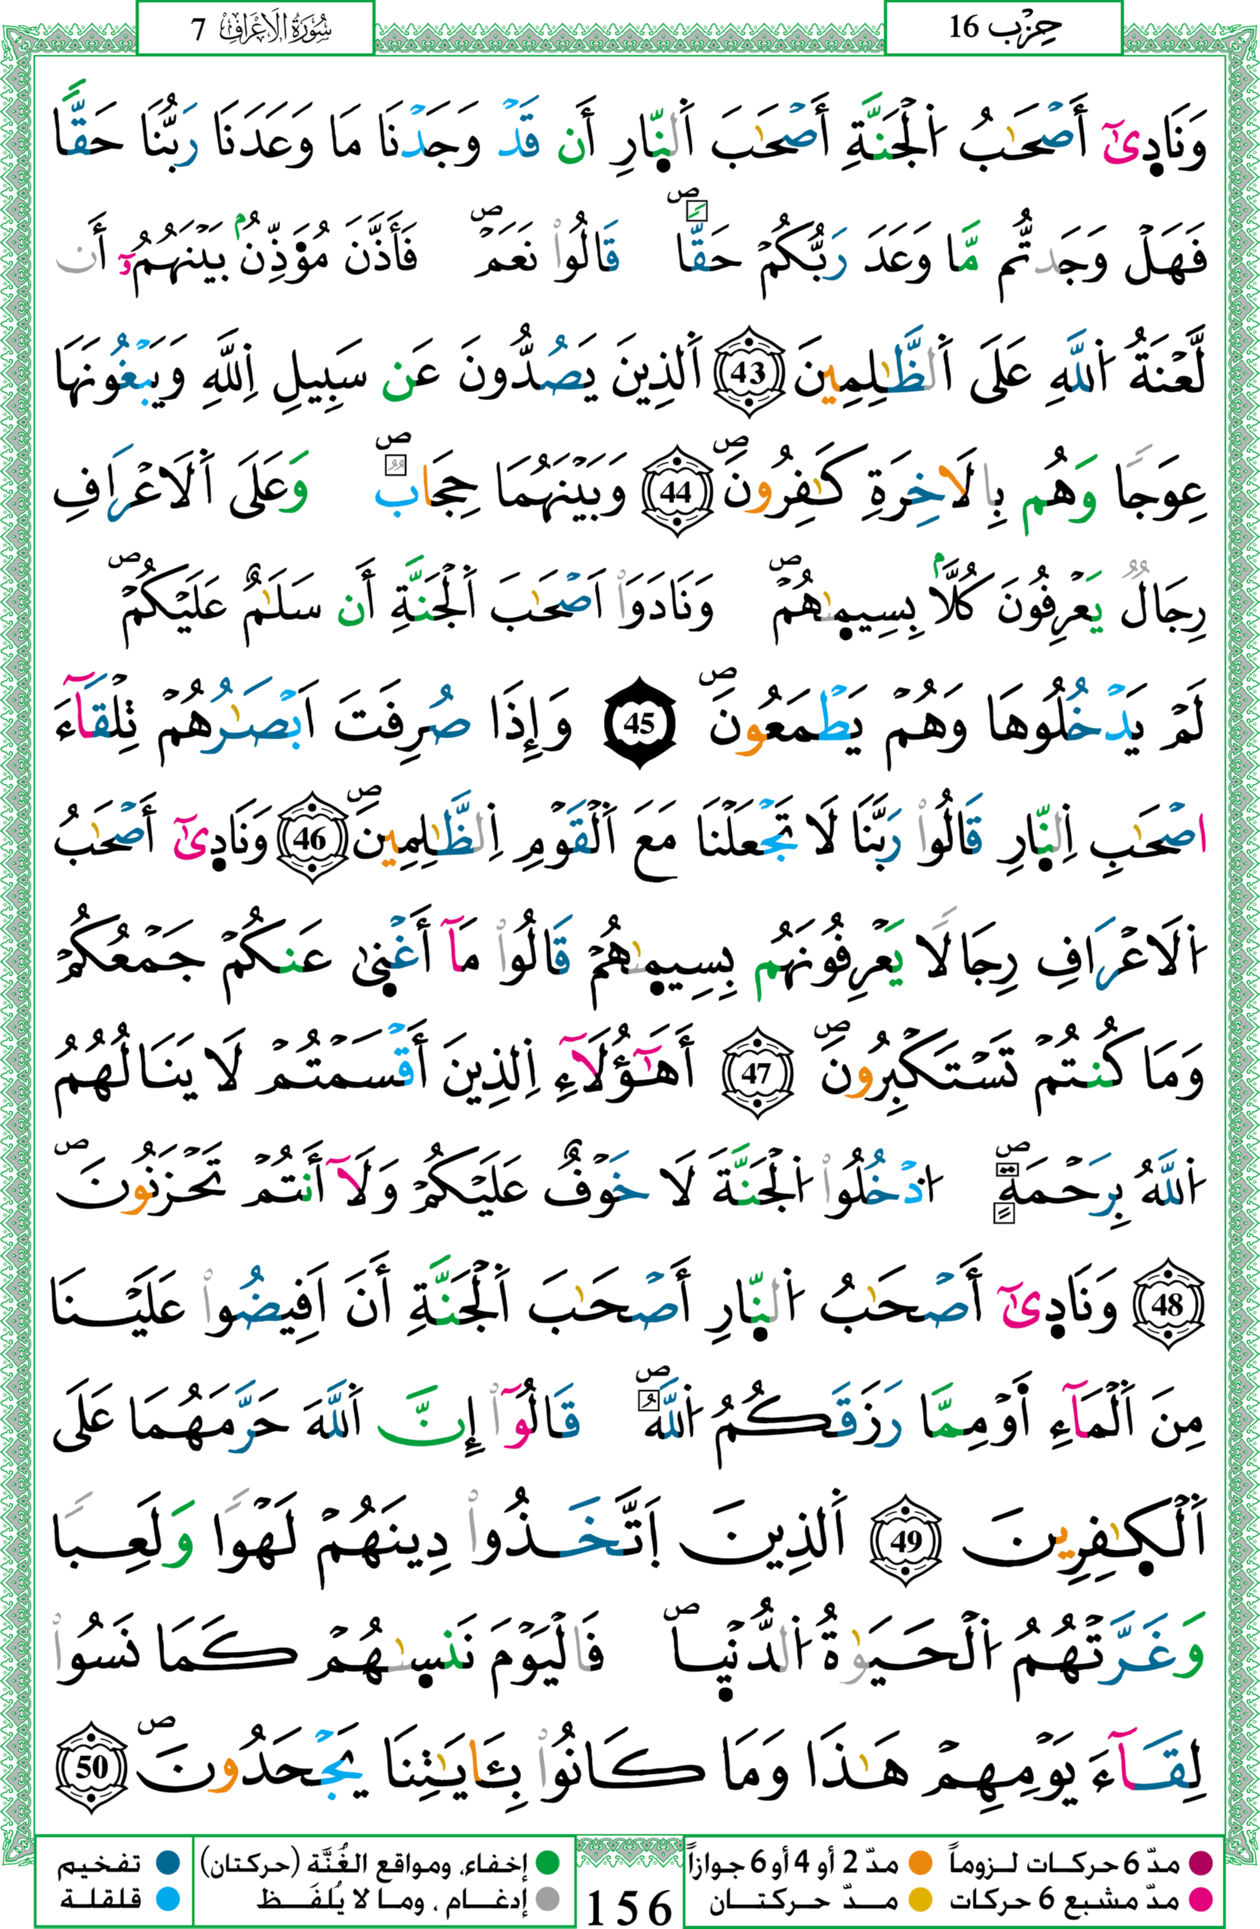 حِزْب 16
سُورَةُ الْأَعْرَافِ 7
وَنَادِىٰٓ أَصْحَٰبُ اُ۬لْجَنَّةِ أَصْحَٰبَ اَ۬لنّ۪ارِ أَن قَدْ وَجَدْنَا مَا وَعَدَنَا رَبُّنَا حَقّاٗ
فَهَلْ وَجَدتُّم مَّا وَعَدَ رَبُّكُمْ حَقّاٗ ص قَالُواْ نَعَمْ ص فَأَذَّنَ مُؤَذِّنُۢ بَيْنَهُمُۥٓ أَن
لَّعْنَةُ اُ۬للَّهِ عَلَى اَ۬لظَّٰلِمِينَ 43 اَ۬لذِينَ يَصُدُّونَ عَن سَبِيلِ اِ۬للَّهِ وَيَبْغُونَهَا
عِوَجاٗ وَهُم بِالَاخِرَةِ كَٰفِرُونَ ص 44 وَبَيْنَهُمَا حِجَابٞ ص وَعَلَى اَ۬لَاعْرَافِ
رِجَالٞ يَعْرِفُونَ كُلّاَۢ بِسِيم۪ىٰهُمْ ص وَنَادَوَاْ اَصْحَٰبَ اَ۬لْجَنَّةِ أَن سَلَٰمٌ عَلَيْكُمْ ص
لَمْ يَدْخُلُوهَا وَهُمْ يَطْمَعُونَ ص 45 وَإِذَا صُرِفَتَ اَبْصَٰرُهُمْ تِلْقَآءَ
اَصْحَٰبِ اِ۬لنّ۪ارِ قَالُواْ رَبَّنَا لَا تَجْعَلْنَا مَعَ اَ۬لْقَوْمِ اِ۬لظَّٰلِمِينَ ص 46 وَنَادِىٰٓ أَصْحَٰبُ
اُ۬لَاعْرَافِ رِجَالاٗ يَعْرِفُونَهُم بِسِيم۪ىٰهُمْ قَالُواْ مَآ أَغْن۪ىٰ عَنكُمْ جَمْعُكُمْ
وَمَا كُنتُمْ تَسْتَكْبِرُونَ ص 47 أَهَٰٓؤُلَآءِ اِ۬لذِينَ أَقْسَمْتُمْ لَا يَنَالُهُمُ
اُ۬للَّهُ بِرَحْمَةٍ ص اُ۟دْخُلُواْ اُ۬لْجَنَّةَ لَا خَوْفٌ عَلَيْكُمْ وَلَآ أَنتُمْ تَحْزَنُونَ ص
48 وَنَادِىٰٓ أَصْحَٰبُ اُ۬لنّ۪ارِ أَصْحَٰبَ اَ۬لْجَنَّةِ أَنَ اَفِيضُواْ عَلَيْنَا
مِنَ اَ۬لْمَآءِ اَ۬وْ مِمَّا رَزَقَكُمُ اُ۬للَّهُ ص قَالُوٓاْ إِنَّ اَ۬للَّهَ حَرَّمَهُمَا عَلَى
اَ۬لْكٰ۪فِرِينَ 49 اَ۬لذِينَ اَ۪تَّخَذُواْ دِينَهُمْ لَهْواٗ وَلَعِباٗ
وَغَرَّتْهُمُ اُ۬لْحَيَوٰةُ اُ۬لدُّنْي۪ا ص فَالْيَوْمَ نَنس۪ىٰهُمْ كَمَا نَسُواْ
لِقَآءَ يَوْمِهِمْ هَٰذَا وَمَا كَانُواْ بِـَٔايَٰتِنَا يَجْحَدُونَ ص 50
مدّ 6 حركات لزوماً مدّ 2 أو 4 أو 6 جوازاً
مدّ مشبع 6 حركات مدّ حركتان
156
إخفاء، ومواقع الغُنَّة (حركتان) تفخيم
إدغام ، وما لا يُلفَظ قلقلة